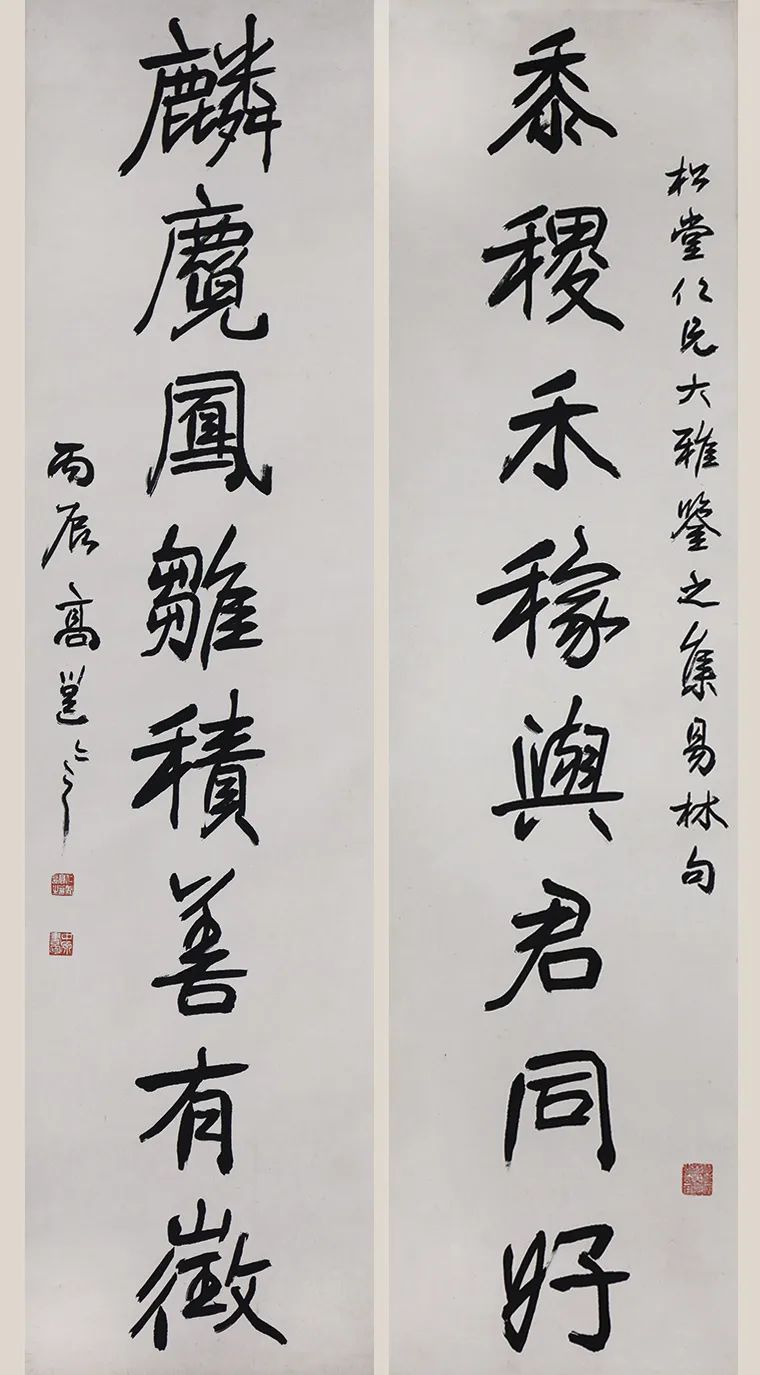 松堂仁兄大雅鑒之集易林句
黍稷禾稼與君同好
麟麑鳳雛積善有徵
丙辰高邕